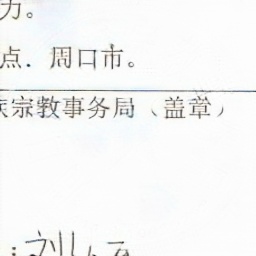 力。
点. 周口市。
族宗教事务局（盖章）